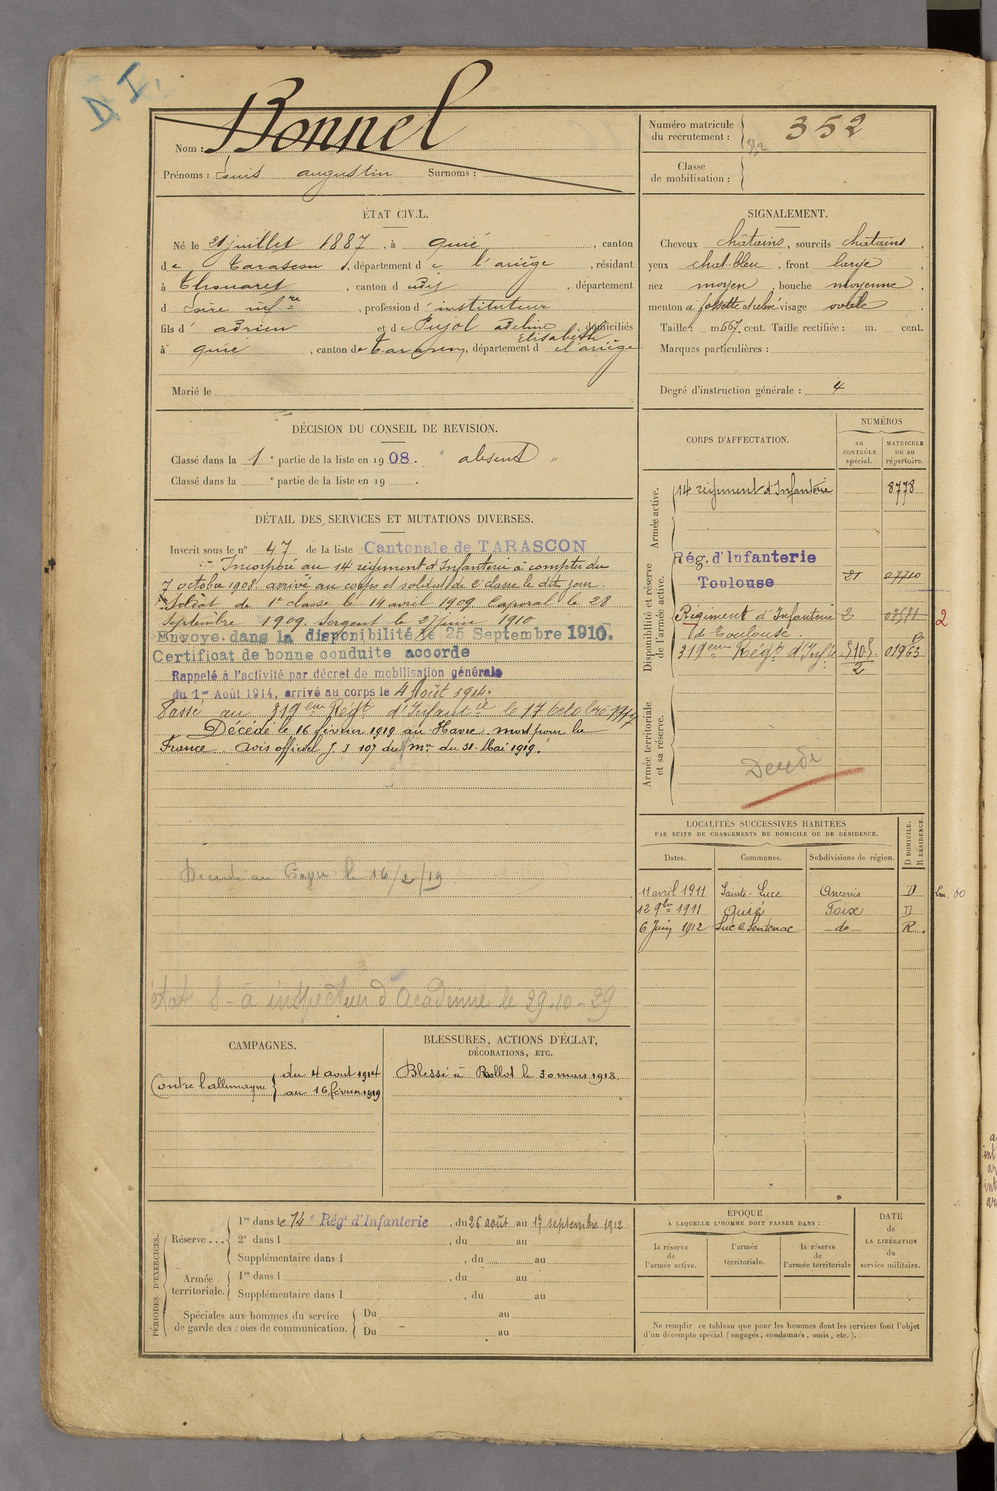 D I.
Nom : Bonnel
Prénoms : Louis augustin Surnoms :
Numéro matricule du recrutement : 352
Classe de mobilisation :
ÉTAT CIVIL.
Né le 21 juillet 1887, à quié, canton
de Tarascon, département de l'ariège, résidant
à Thouaret, canton d udf, département
d Loire infre, profession d'instituteur
fils d' adrien et de Pujol adeline Elisabeth, domiciliés
à quié, canton de Tarascon, département d el'ariège
Marié le
SIGNALEMENT.
Cheveux châtains, sourcils châtains,
yeux chat-bleu, front large,
nez moyen, bouche moyenne,
menton à fossette visage ovale
Taille : 1 m 667. cent. Taille rectifiée : m. cent.
Marques particulières :
Degré d'instruction générale : 4
DÉCISION DU CONSEIL DE REVISION.
Classé dans la 1e partie de la liste en 1908. " absent "
Classé dans la e partie de la liste en 19 .
DÉTAIL DES SERVICES ET MUTATIONS DIVERSES.
Inscrit sous le n° 47 de la liste Cantonale de TARASCON
Incorporé au 14 régiment d'Infanterie à compter du
7 octobre 1908. arrivé au corps et soldat de 2e classe le dit jour.
Soldat de 1e classe le 14 avril 1909. Caporal le 28
Septembre 1909. Sergent le 27 juin 1910
Envoyé dans la disponibilité le 25 Septembre 1910.
Certificat de bonne conduite accordé
Rappelé à l'activité par décret de mobilisation générale
du 1er Août 1914, arrivé au corps le 4 Août 1914.
Passé au 319eme Régt d'Infantie le 17 Octobre 1917
Décédé le 16 février 1919 au Havre mort pour la
France avis officiel J S 107 du mre du 31 Mai 1919.
Décédé au le 16/2/19
état S - à inspecteur d'Académie le 29-10-29
CORPS D'AFFECTATION.
NUMÉROS
au CONTRÔLE spécial.
MATRICULE ou au répertoire.
Armée active.
14 régiment d'Infanterie 8778
Disponibilité et réserve de l'armée active.
Rég. d'Infanterie
Toulouse 21 07710
Régiment d'Infanterie 2
de Toulouse. 2
319eme Régt d'Infie 01963
2
Armée territoriale et sa réserve.
Décédé
LOCALITÉS SUCCESSIVES HABITÉES
PAR SUITE DE CHANGEMENTS DE DOMICILE OU DE RÉSIDENCE.
Dates. Communes. Subdivisions de région. D DOMICILE. R RÉSIDENCE.
11 avril 1911 Sainte-Luce Ancenis D
12 9bre 1911 Quié Foix D
6 Juin 1912 Luc & Sentenac -do- R.
CAMPAGNES.
Contre l'allemagne { du 4 aout 1914
au 16 février 1919
BLESSURES, ACTIONS D'ÉCLAT,
DÉCORATIONS, ETC.
Blessé à Rollot le 30 mars 1918.
PÉRIODES D'EXERCICES.
Réserve ... 1re dans le 14e Régt d'Infanterie, du 26 août au 17 septembre 1912
2e dans l , du au
Supplémentaire dans l , du au
Armée territoriale. 1re dans l , du au
Supplémentaire dans l , du au
Spéciales aux hommes du service Du au
de garde des voies de communication. Du au
ÉPOQUE
À LAQUELLE L'HOMME DOIT PASSER DANS :
la réserve de l'armée active.
l'armée territoriale.
la réserve de l'armée territoriale
DATE de LA LIBÉRATION du service militaire.
Ne remplir ce tableau que pour les hommes dont les services font l'objet
d'un décompte spécial (engagés, condamnés, omis, etc.).